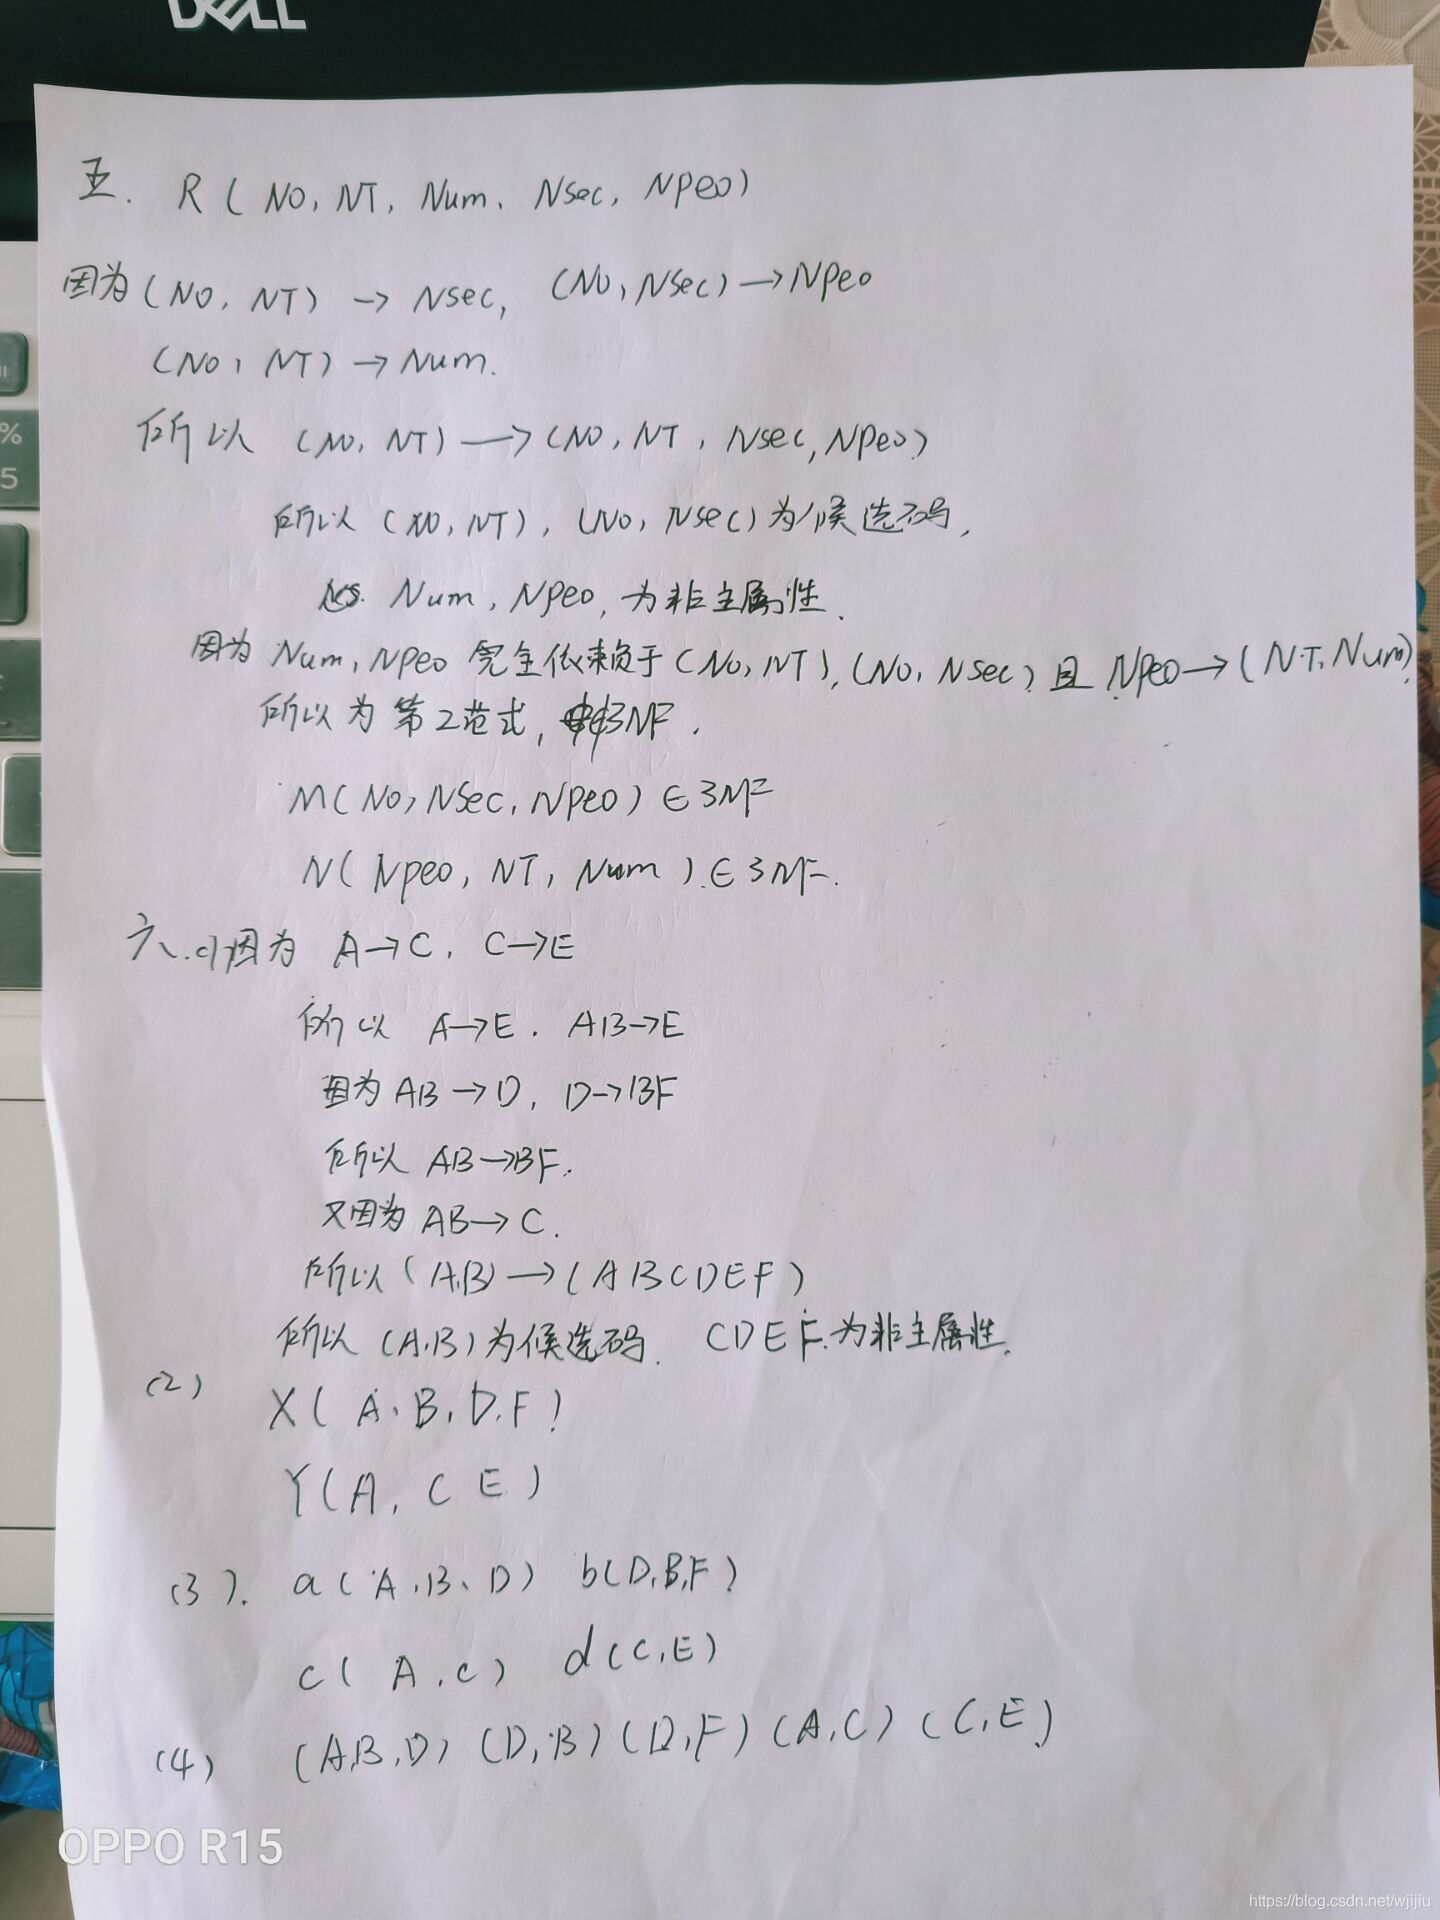 DELL
五. R(NO, NT, Num, Nsec, NPeo)
因为(NO, NT) → Nsec, (NO, NSec)→NPeo
(NO, NT)→Num.
所以 (NO, NT)→(NO, NT, Nsec, NPeo)
所以 (NO, NT), (NO, Nsec)为候选码,
Num, NPeo, 为非主属性.
因为 Num, NPeo 完全依赖于(NO, NT), (NO, NSec) 且 NPeo→(NT, Num)
所以为第2范式, 3NF.
M(NO, NSec, NPeo) ∈ 3NF
N(NPeo, NT, Num) ∈ 3NF.
六、(1)因为 A→C, C→E
所以 A→E. AB→E
因为 AB→D, D→BF
所以 AB→BF.
又因为 AB→C.
所以(A,B)→(ABCDEF)
所以 (A,B)为候选码. CDEF.为非主属性.
(2) X(A, B, D, F)
Y(A, C E)
(3). a(A, B, D) b(D,B,F)
c(A, C) d(C,E)
(4) (A,B,D) (D,B) (D,F) (A,C) (C,E)
%
5
OPPO R15
https://blog.csdn.net/wjijiu